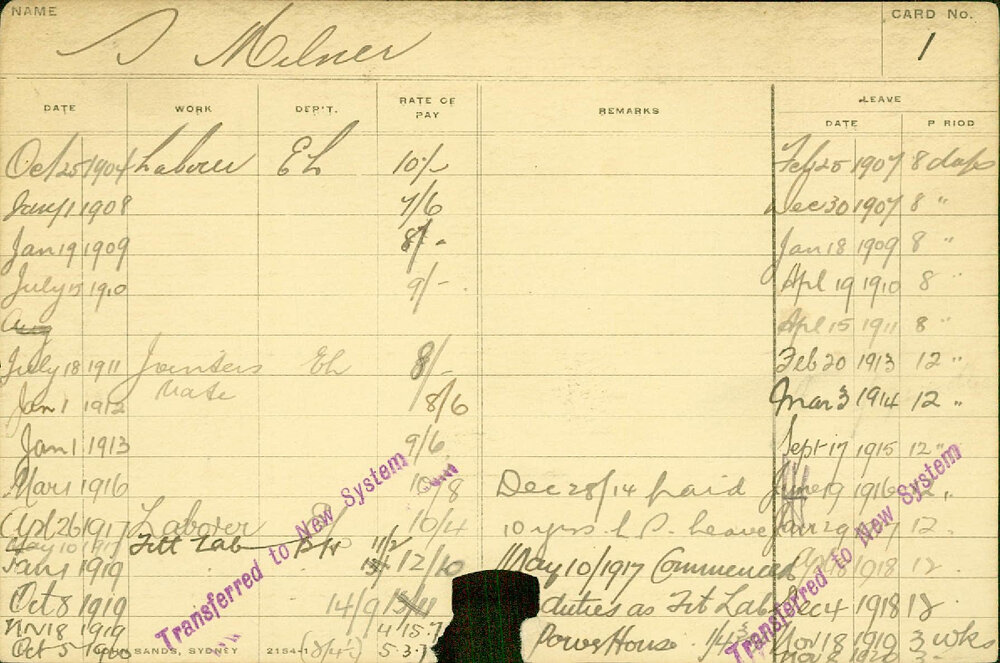 NAME CARD No.
Milner 1
DATE WORK DEP'T. RATE OF PAY REMARKS LEAVE
DATE PERIOD
Oct 25 1904 Labour EL 10/- Feb 25 1907 8 days
Jany 1 1908 7/6 Dec 30 1907 8 "
Jan 19 1909 8/- Jan 18 1909 8 "
July 1910 9/- Apl 19 1910 8
Aug Apl 15 1911 8 "
July 18 1911 Jointers EL 8/- Feb 20 1913 12 "
Mate
Jan 1 1912 8/6 Mar 3 1914 12 "
Jan 1 1913 9/6 Sept 17 1915 12 "
Mar 1 1916 Dec 28/14 paid June 19 1916 12 "
Apl 26 1917 Labourer 10/4 10 yrs L S Leave Jan 29 12
May 10 1917 Fitt Lab PH 11/2
Jan 1 1919 12/10 May 10/1917 Commenced 1918 12
Oct 8 1919 14/9 duties as Fit Lab Dec 4 1918 12
Nov 18 1919 4.15.7 PowerHouse Nov 18 1919 3 wks
Oct 5 SANDS, SYDNEY 5.3.7
Transferred to New System
Transferred to New System